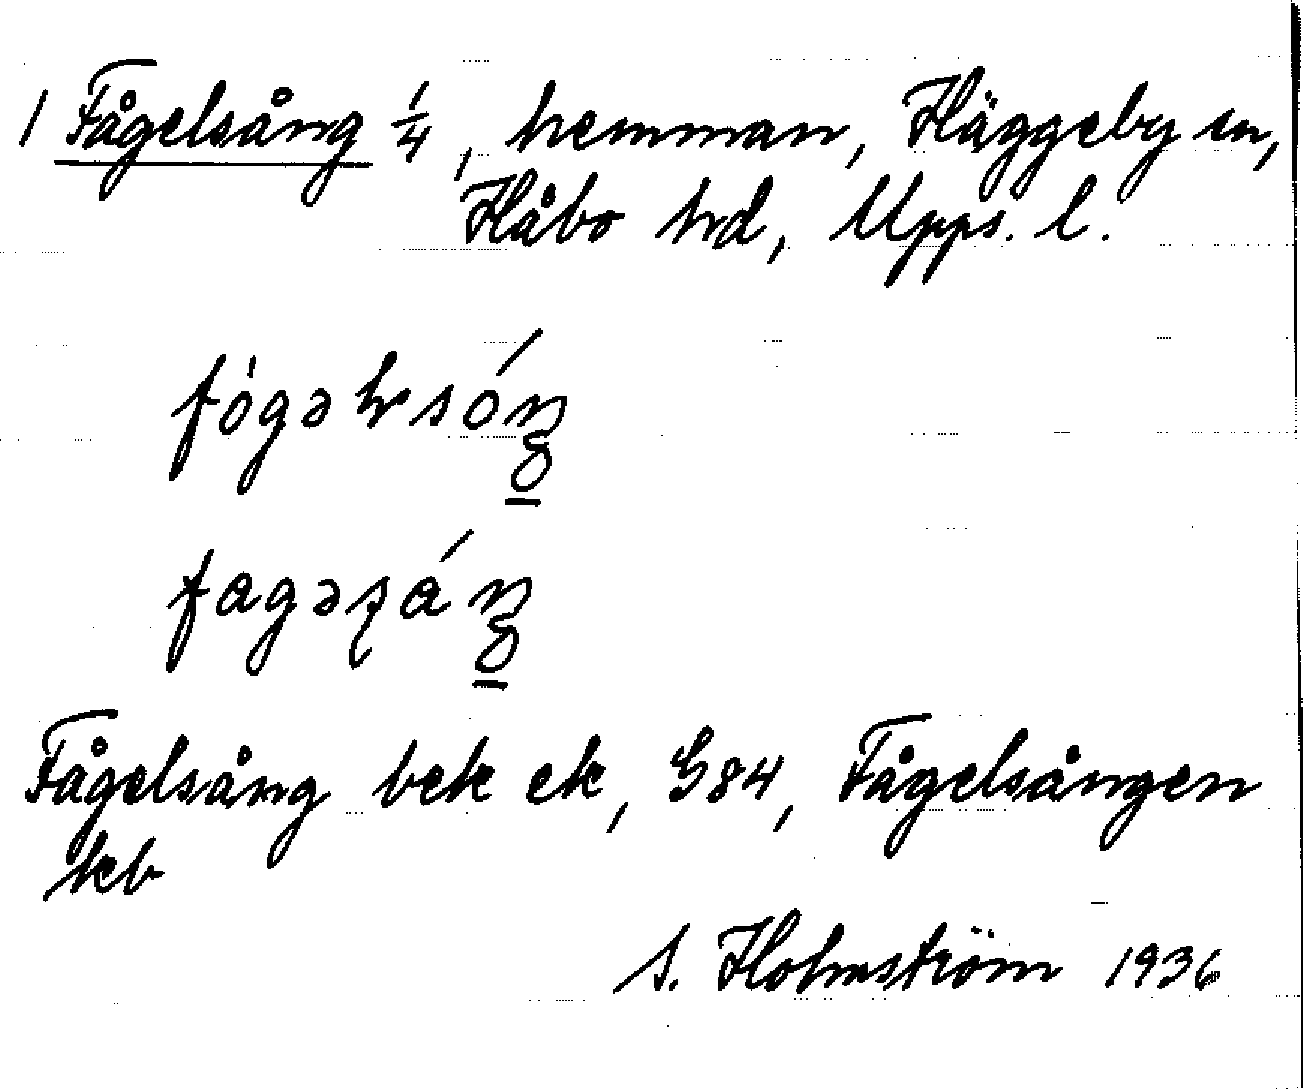 1 Fågelsång 1/4, hemman, Häggeby sn,
Håbo hd, Upps. l.
fógəlsóŋ
fagəsáŋ
Fågelsång bek ek, G84, Fågelsången
kb
S. Holmström 1936